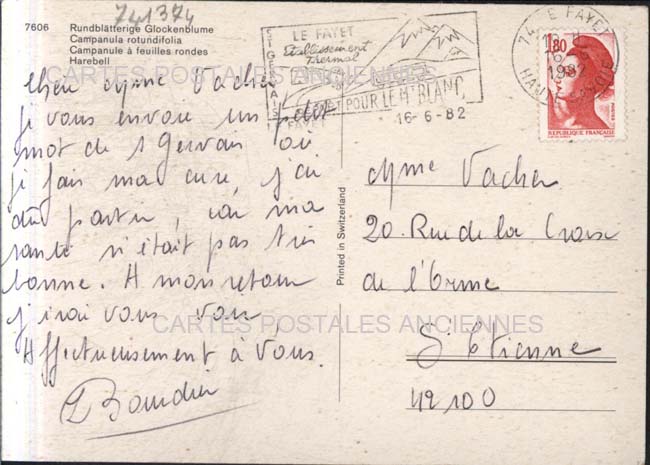 741374
7606 Rundblätterige Glockenblume
Campanula rotundifolia
Campanule à feuilles rondes
Harebell
LE FAYET
Etablissement
Thermal
POUR LE Mt BLANC
ST GERVAIS
FAYET
16-6-82
74 LE FAYET
1982
HAUTE SAVOIE
1,80
REPUBLIQUE FRANÇAISE
CARTES POSTALES ANCIENNES
Chère Mme Vacher
je vous envoie un petit
mot de St Gervais où
je fais ma cure, j'ai
dû partir, car ma
santé n'était pas très
bonne. A mon retour
j'irai vous voir
Affectueusement à vous.
Printed in Switzerland
Mme Vacher
20. Rue de la Croix
de l'Orme
CARTES POSTALES ANCIENNES
St Etienne
42100